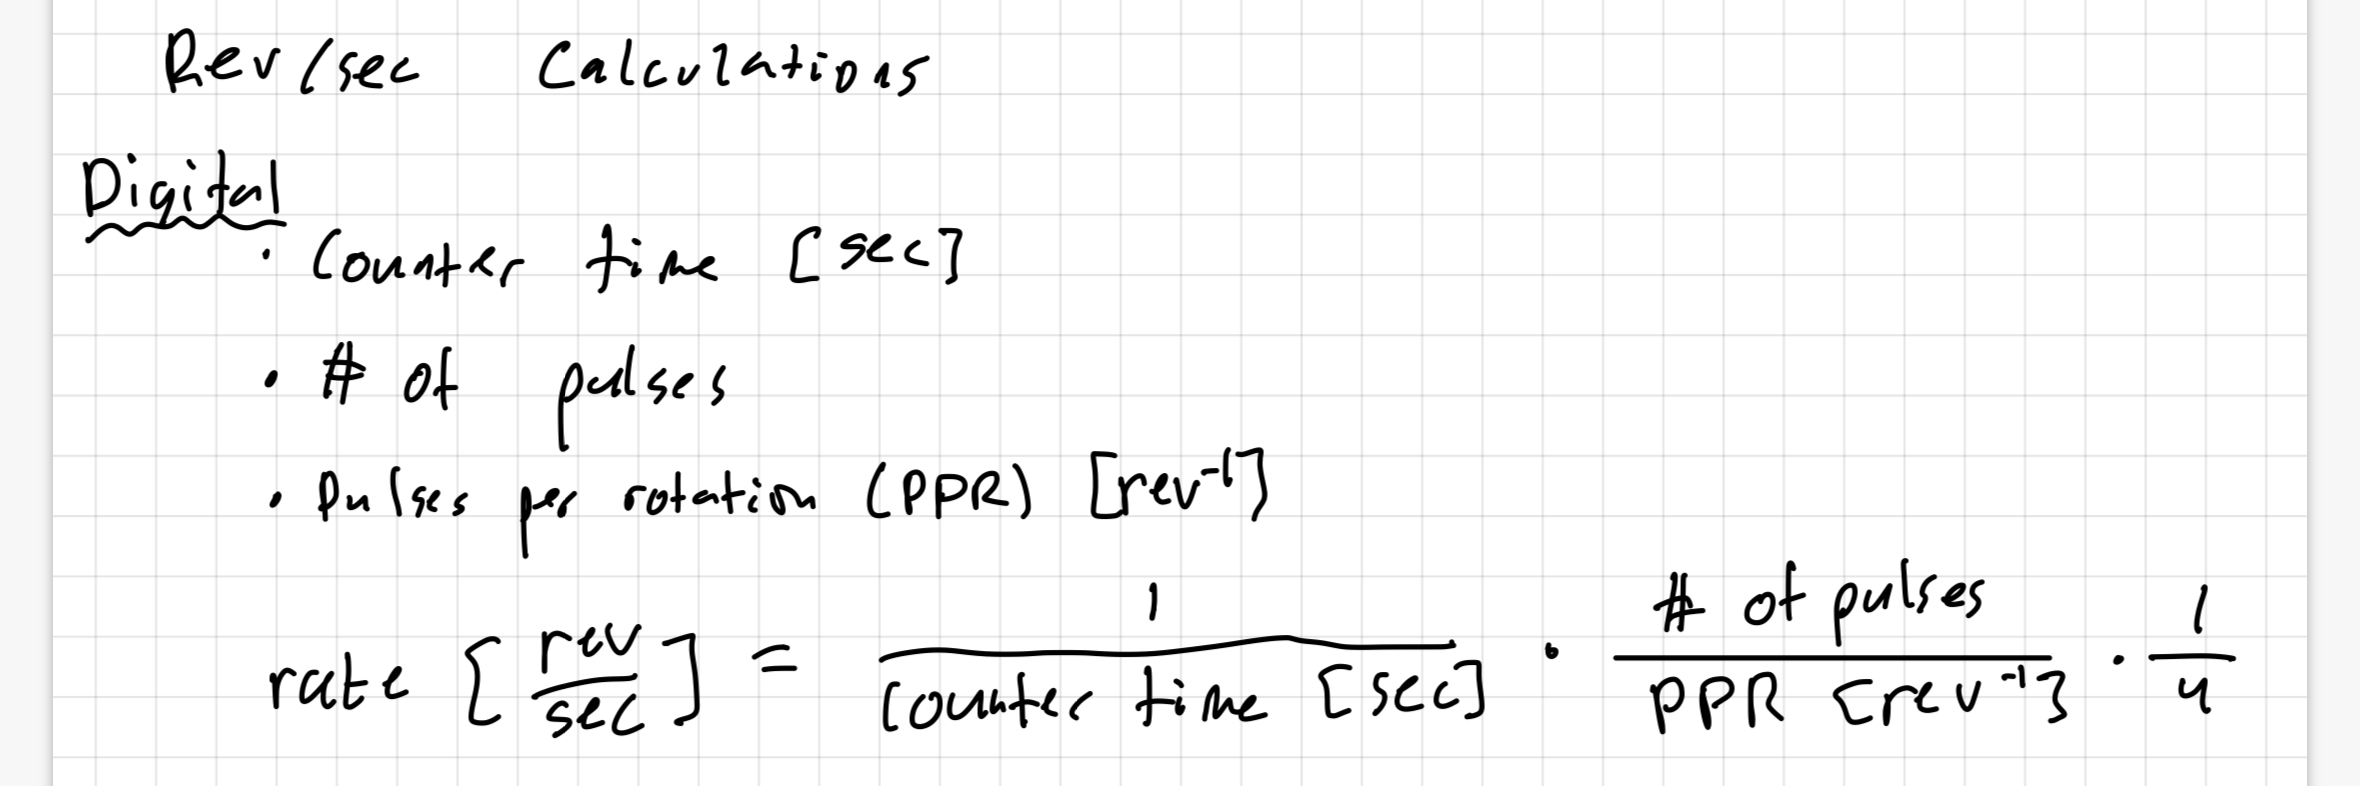 Rev/sec Calculations
Digital
· Counter time [sec]
· # of pulses
· Pulses per rotation (PPR) [rev⁻¹]
rate [rev/sec] = 1/(Counter time [sec]) · (# of pulses)/(PPR [rev⁻¹]) · 1/4